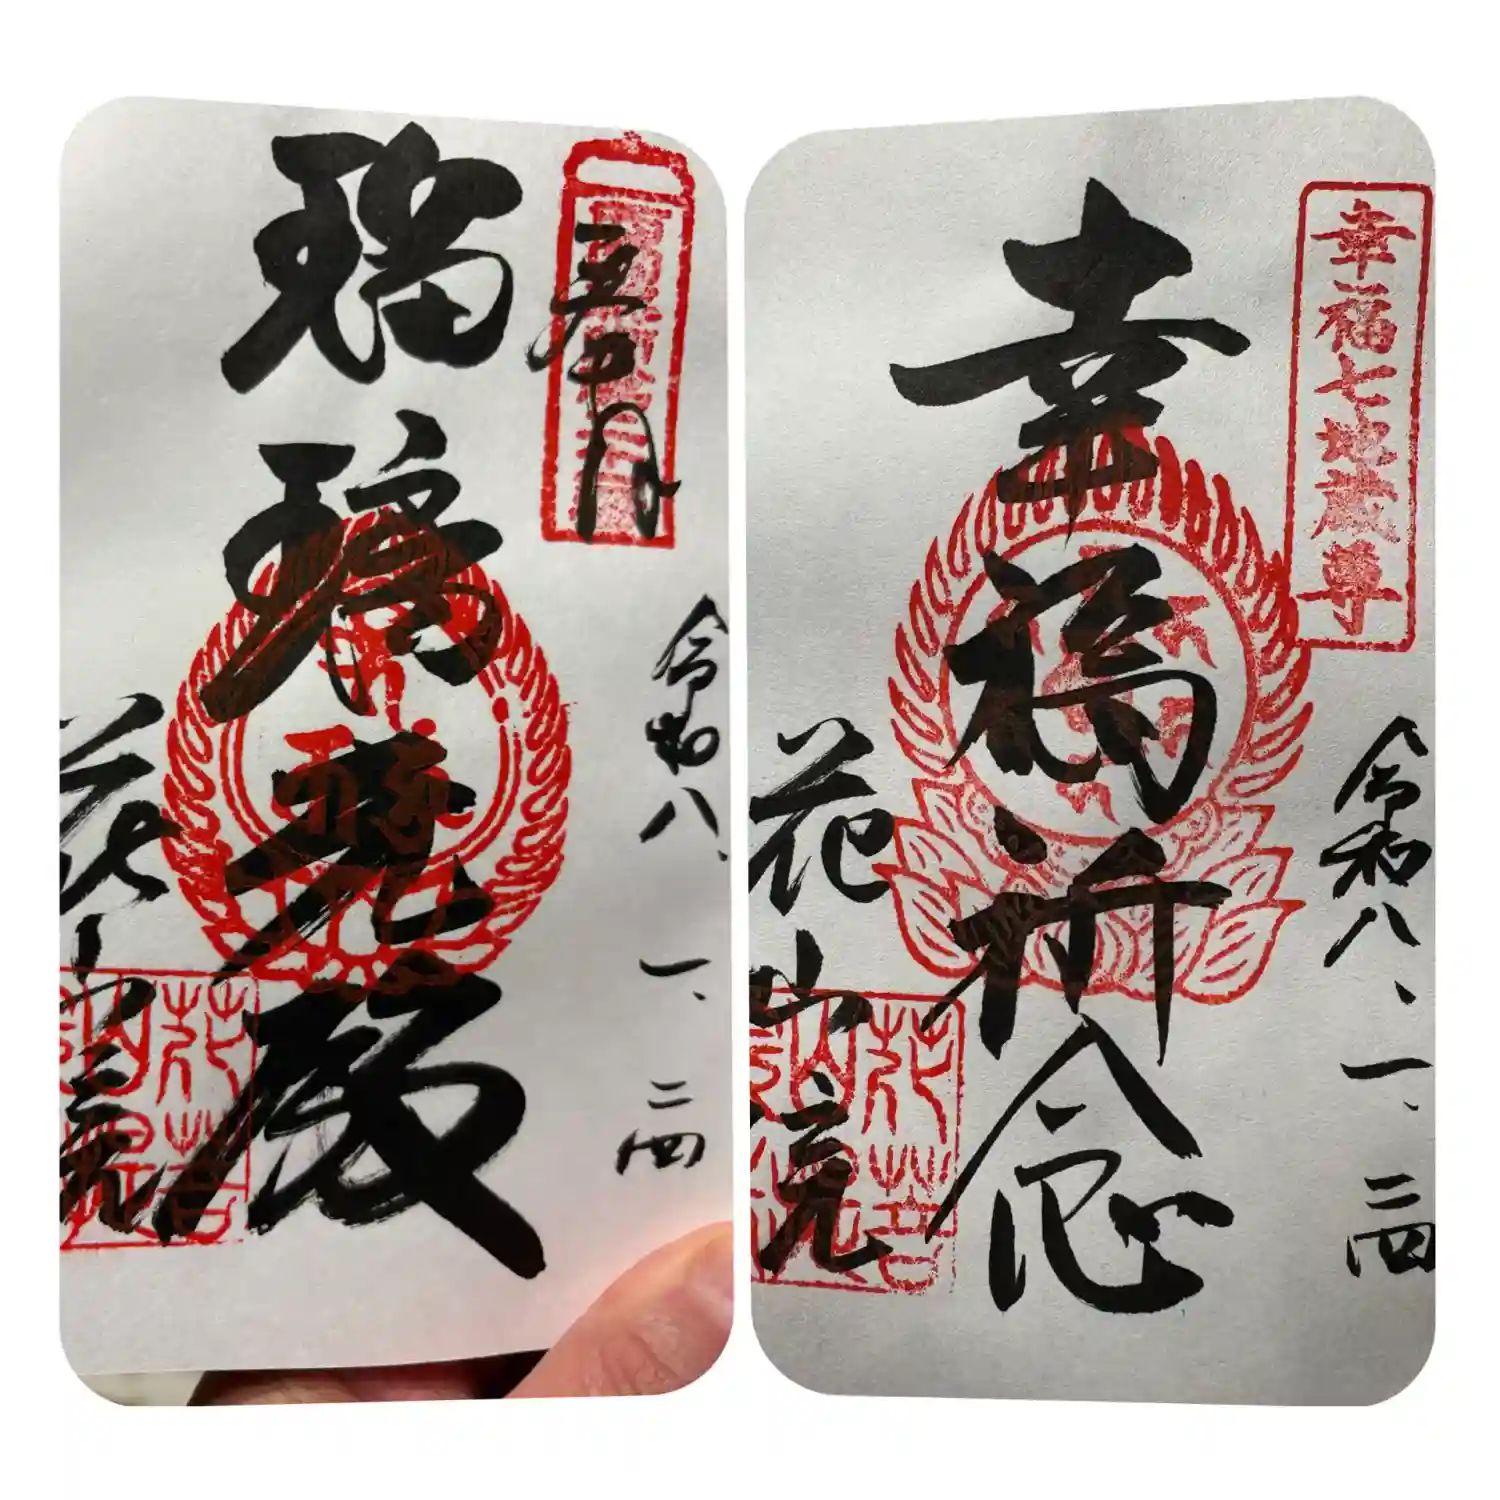 奉拝
瑠璃光殿
令和八、一、二四
花山院
幸福七地蔵尊
幸福祈念
令和八、一、二四
花山院